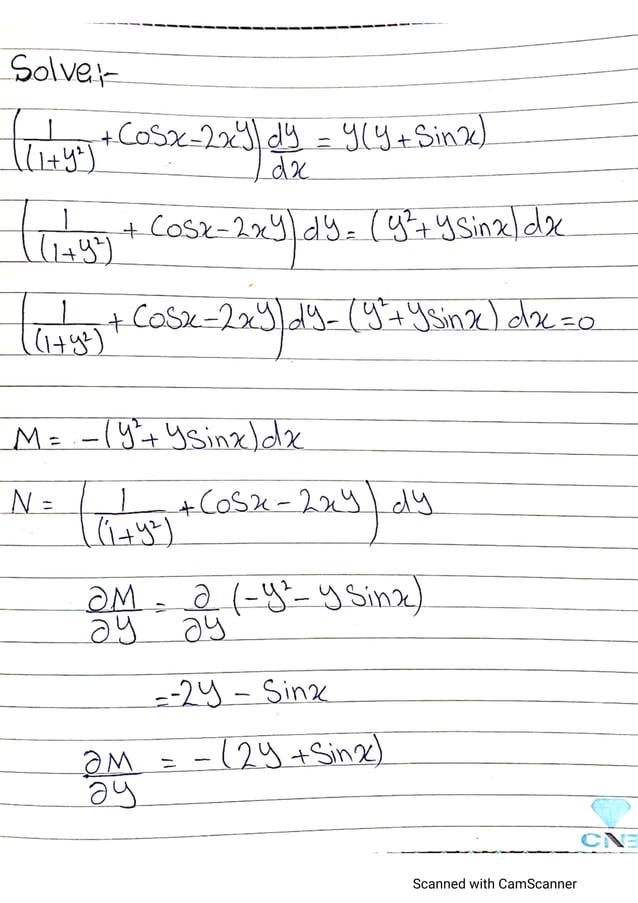 Solve:-
(1/(1+y²) + Cosx - 2xy) dy/dx = y(y + Sinx)
(1/(1+y²) + Cosx - 2xy) dy = (y² + ysinx) dx
(1/(1+y²) + Cosx - 2xy) dy - (y² + ysinx) dx = 0
M = - (y² + ysinx) dx
N = (1/(1+y²) + Cosx - 2xy) dy
∂M/∂y = ∂/∂y (-y² - y Sinx)
= -2y - Sinx
∂M/∂y = - (2y + Sinx)
CNB
Scanned with CamScanner